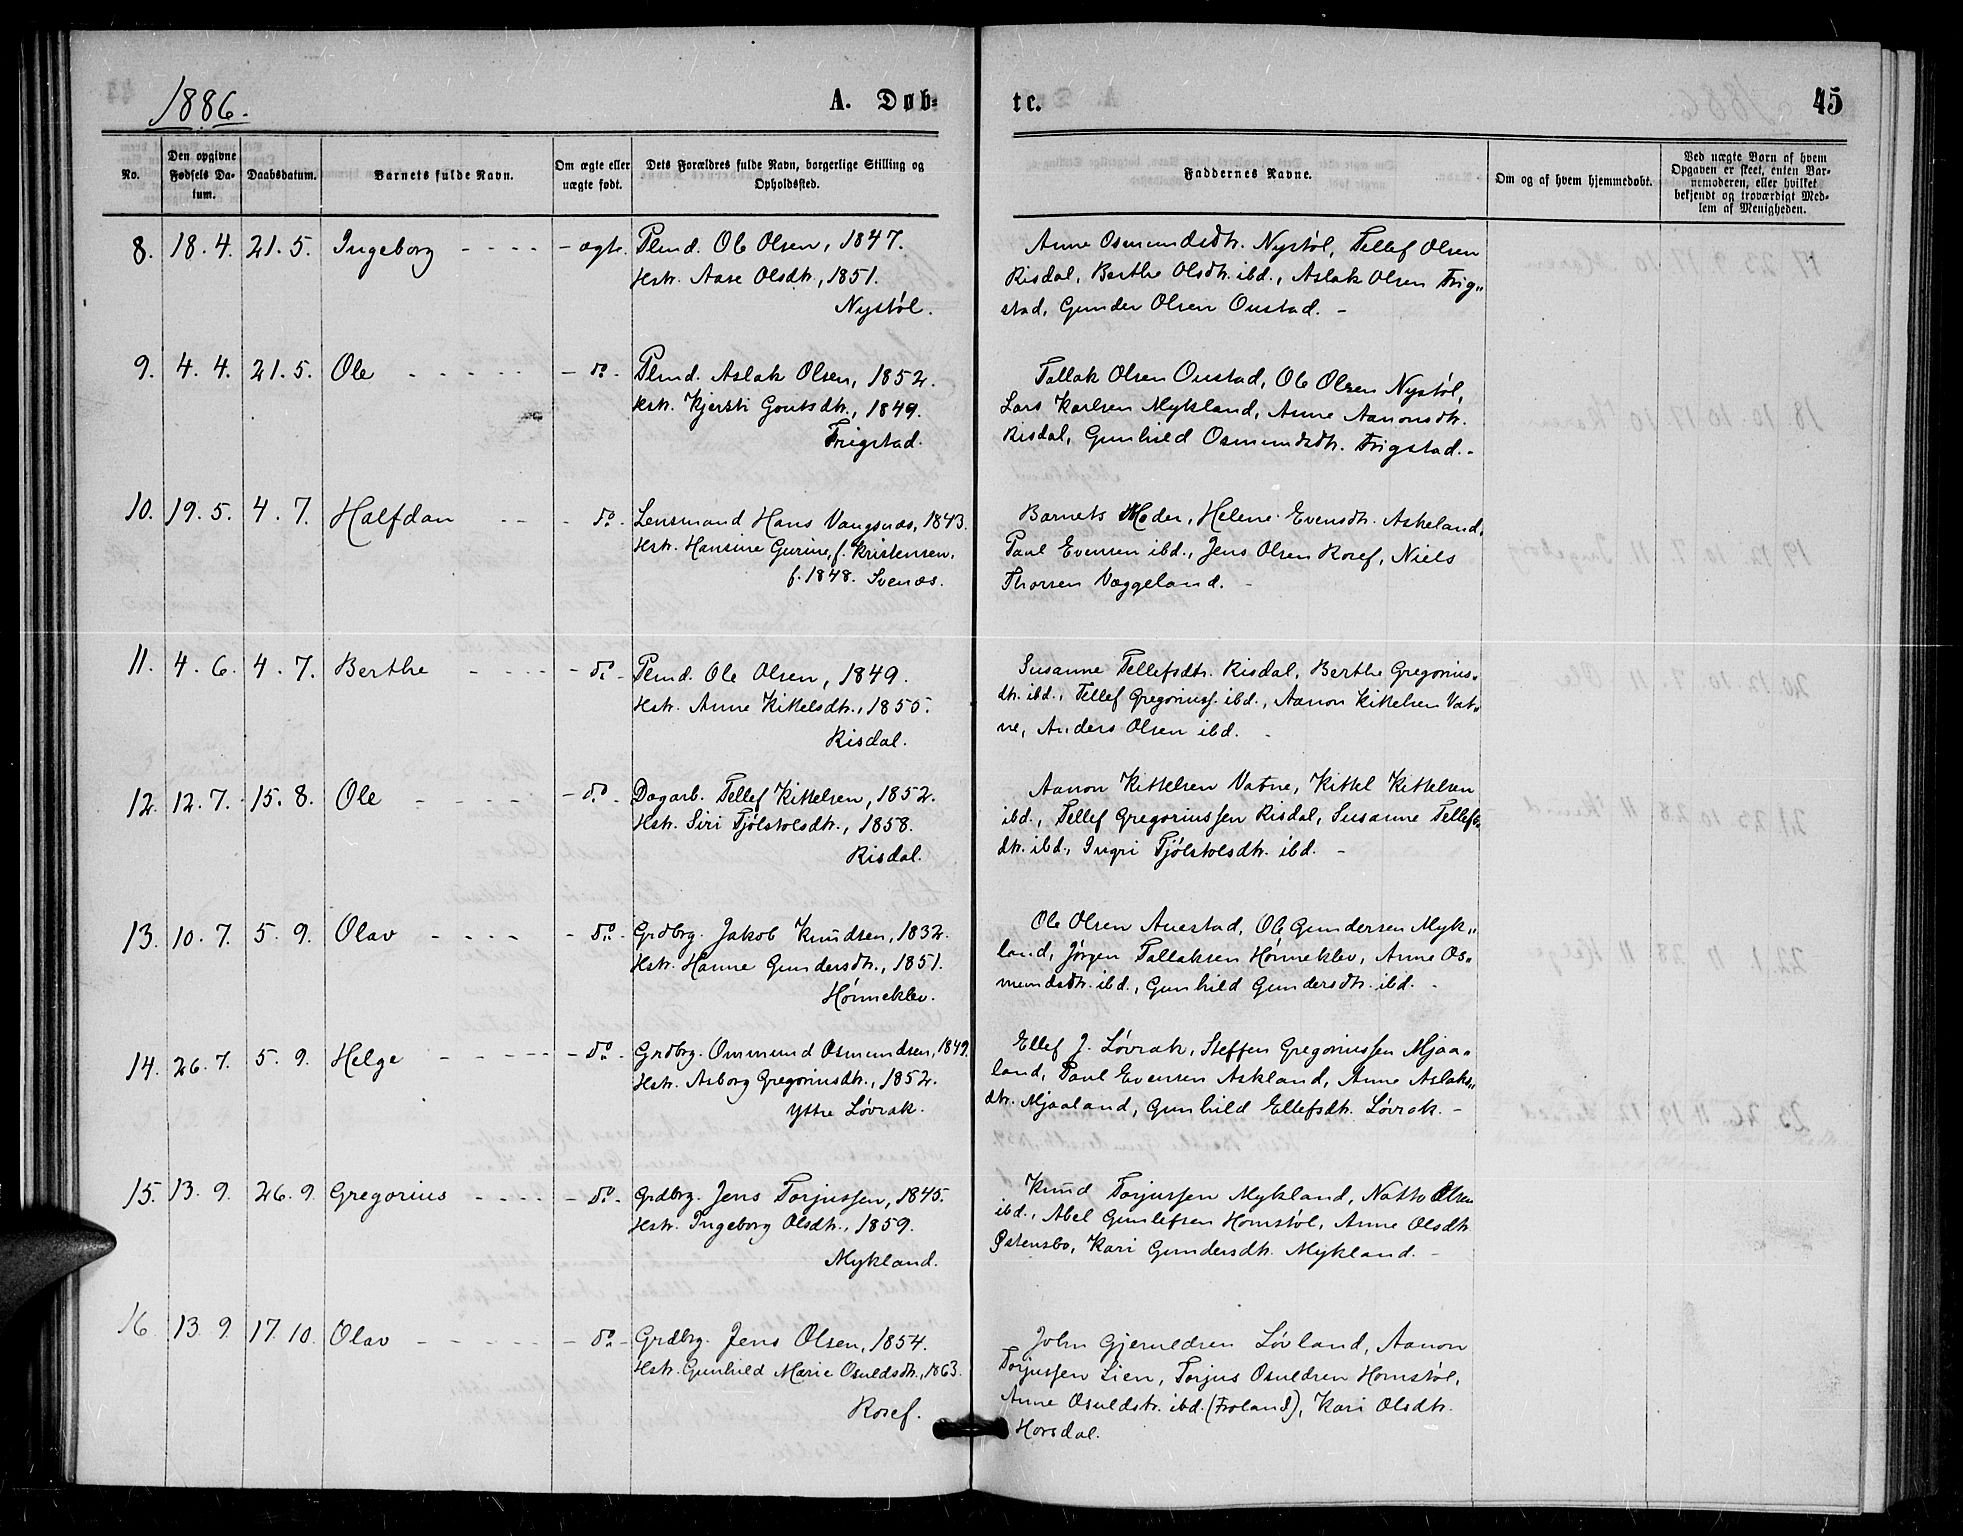 1886.
A. Døb-
te.
45
No.
Den opgivne Fødsels Datum.
Daabsdatum.
Barnets fulde Navn.
Om ægte eller uægte født.
Dets Forældres fulde Navn, borgerlige Stilling og Opholdssted.
Faddernes Navne.
Om og af hvem hjemmedøbt.
Ved uægte Barn af hvem
Opgaven er skeet, enten Bar-
nemoderen, eller hvilket
bekjendt og troværdigt Med-
lem af Menigheden.
8. 18. 4. 21. 5. Ingeborg - - - - - ægte. Plmd. Ole Olsen, 1847.
Hstr. Aase Olsdtr., 1851.
Nystøl.
Anne Osmundsdtr. Nystøl, Tellef Olsen
Risdal, Berthe Olsdtr. ibd., Aslak Olsen Frig„
stad, Gunder Olsen Oustad. -
9. 4. 4. 21. 5. Ole - - - - - - do. - Plmd. Aslak Olsen, 1852.
Hstr. Kjersti Goutsdtr., 1849.
Frigstad.
Tallak Olsen Oustad, Ole Olsen Nystøl,
Lars Karlsen Mykland, Anne Aanonsdtr.
Risdal, Gunhild Osmundsdtr. Frigstad. -
10. 19. 5. 4. 7. Halfdan - - - do. - Lensmand Hans Vangsnæs, 1843.
Hstr. Hansine Gurine, f. Kristensen,
f. 1848. Svenæs.
Barnets Moder, Helene Evensdtr. Askeland,
Paul Evensen ibd., Jens Olsen Rosef, Niels
Thorsen Væggeland. -
11. 4. 6. 4. 7. Berthe - - - - - do. - Plmd. Ole Olsen, 1849.
Hstr. Anne Kittelsdtr., 1855.
Risdal.
Susanne Tellefsdtr. Risdal, Berthe Gregorius„
dtr. ibd., Tellef Gregoriuss. ibd., Aanon Kittelsen Vat„
ne, Anders Olsen ibd. -
12. 12. 7. 15. 8. Ole - - - - - do. - Dagarb. Tellef Kittelsen, 1852.
Hstr. Siri Tjølstolsdtr., 1858.
Risdal.
Aanon Kittelsen Vatne, Kittel Kittelsen
ibd., Tellef Gregoriussen Risdal, Susanne Tellefs„
dtr. ibd., Ingri Tjølstolsdtr. ibd. -
13. 10. 7. 5. 9. Olav - - - - - do. - Grdbrg. Jakob Knudsen, 1832.
Hstr. Hanne Gundersdtr., 1851.
Hønneklev.
Ole Olsen Auestad, Ole Gundersen Myk„
land, Jørgen Tallaksen Hønneklev, Anne Os„
mundsdtr. ibd., Gunhild Gundersdtr. ibd. -
14. 26. 7. 5. 9. Helge - - - - - - do. - Grdbrg. Ommund Osmundsen, 1849.
Hstr. Asborg Gregoriusdtr., 1852.
Ytre Løvrak.
Ellef J. Løvrak, Steffen Gregoriussen Mjaa„
land, Paul Evensen Askland, Anne Aslaks„
dtr. Mjaaland, Gunhild Ellefsdtr. Løvrak. -
15. 13. 9. 26. 9. Gregorius - - - - - do. - Grdbrg. Jens Torjussen, 1845.
Hstr. Ingeborg Olsdtr., 1859.
Mykland.
Knud Torjussen Mykland, Natto Olsen
ibd., Abel Gunlefsen Homstøl, Anne Olsdtr.
Østensbo, Kari Gundersdtr. Mykland. -
16. 13. 9. 17. 10. Olav - - - - - - do. - Grdbrg. Jens Olsen, 1854.
Hstr. Gunhild Marie Osuldsdtr., 1863.
Rosef.
John Gjeruldsen Løvland, Aanon
Torjussen Lien, Torjus Osuldsen Homstøl,
Anne Osuldstr. ibd. (Froland), Kari Olsdtr.
Horsdal.